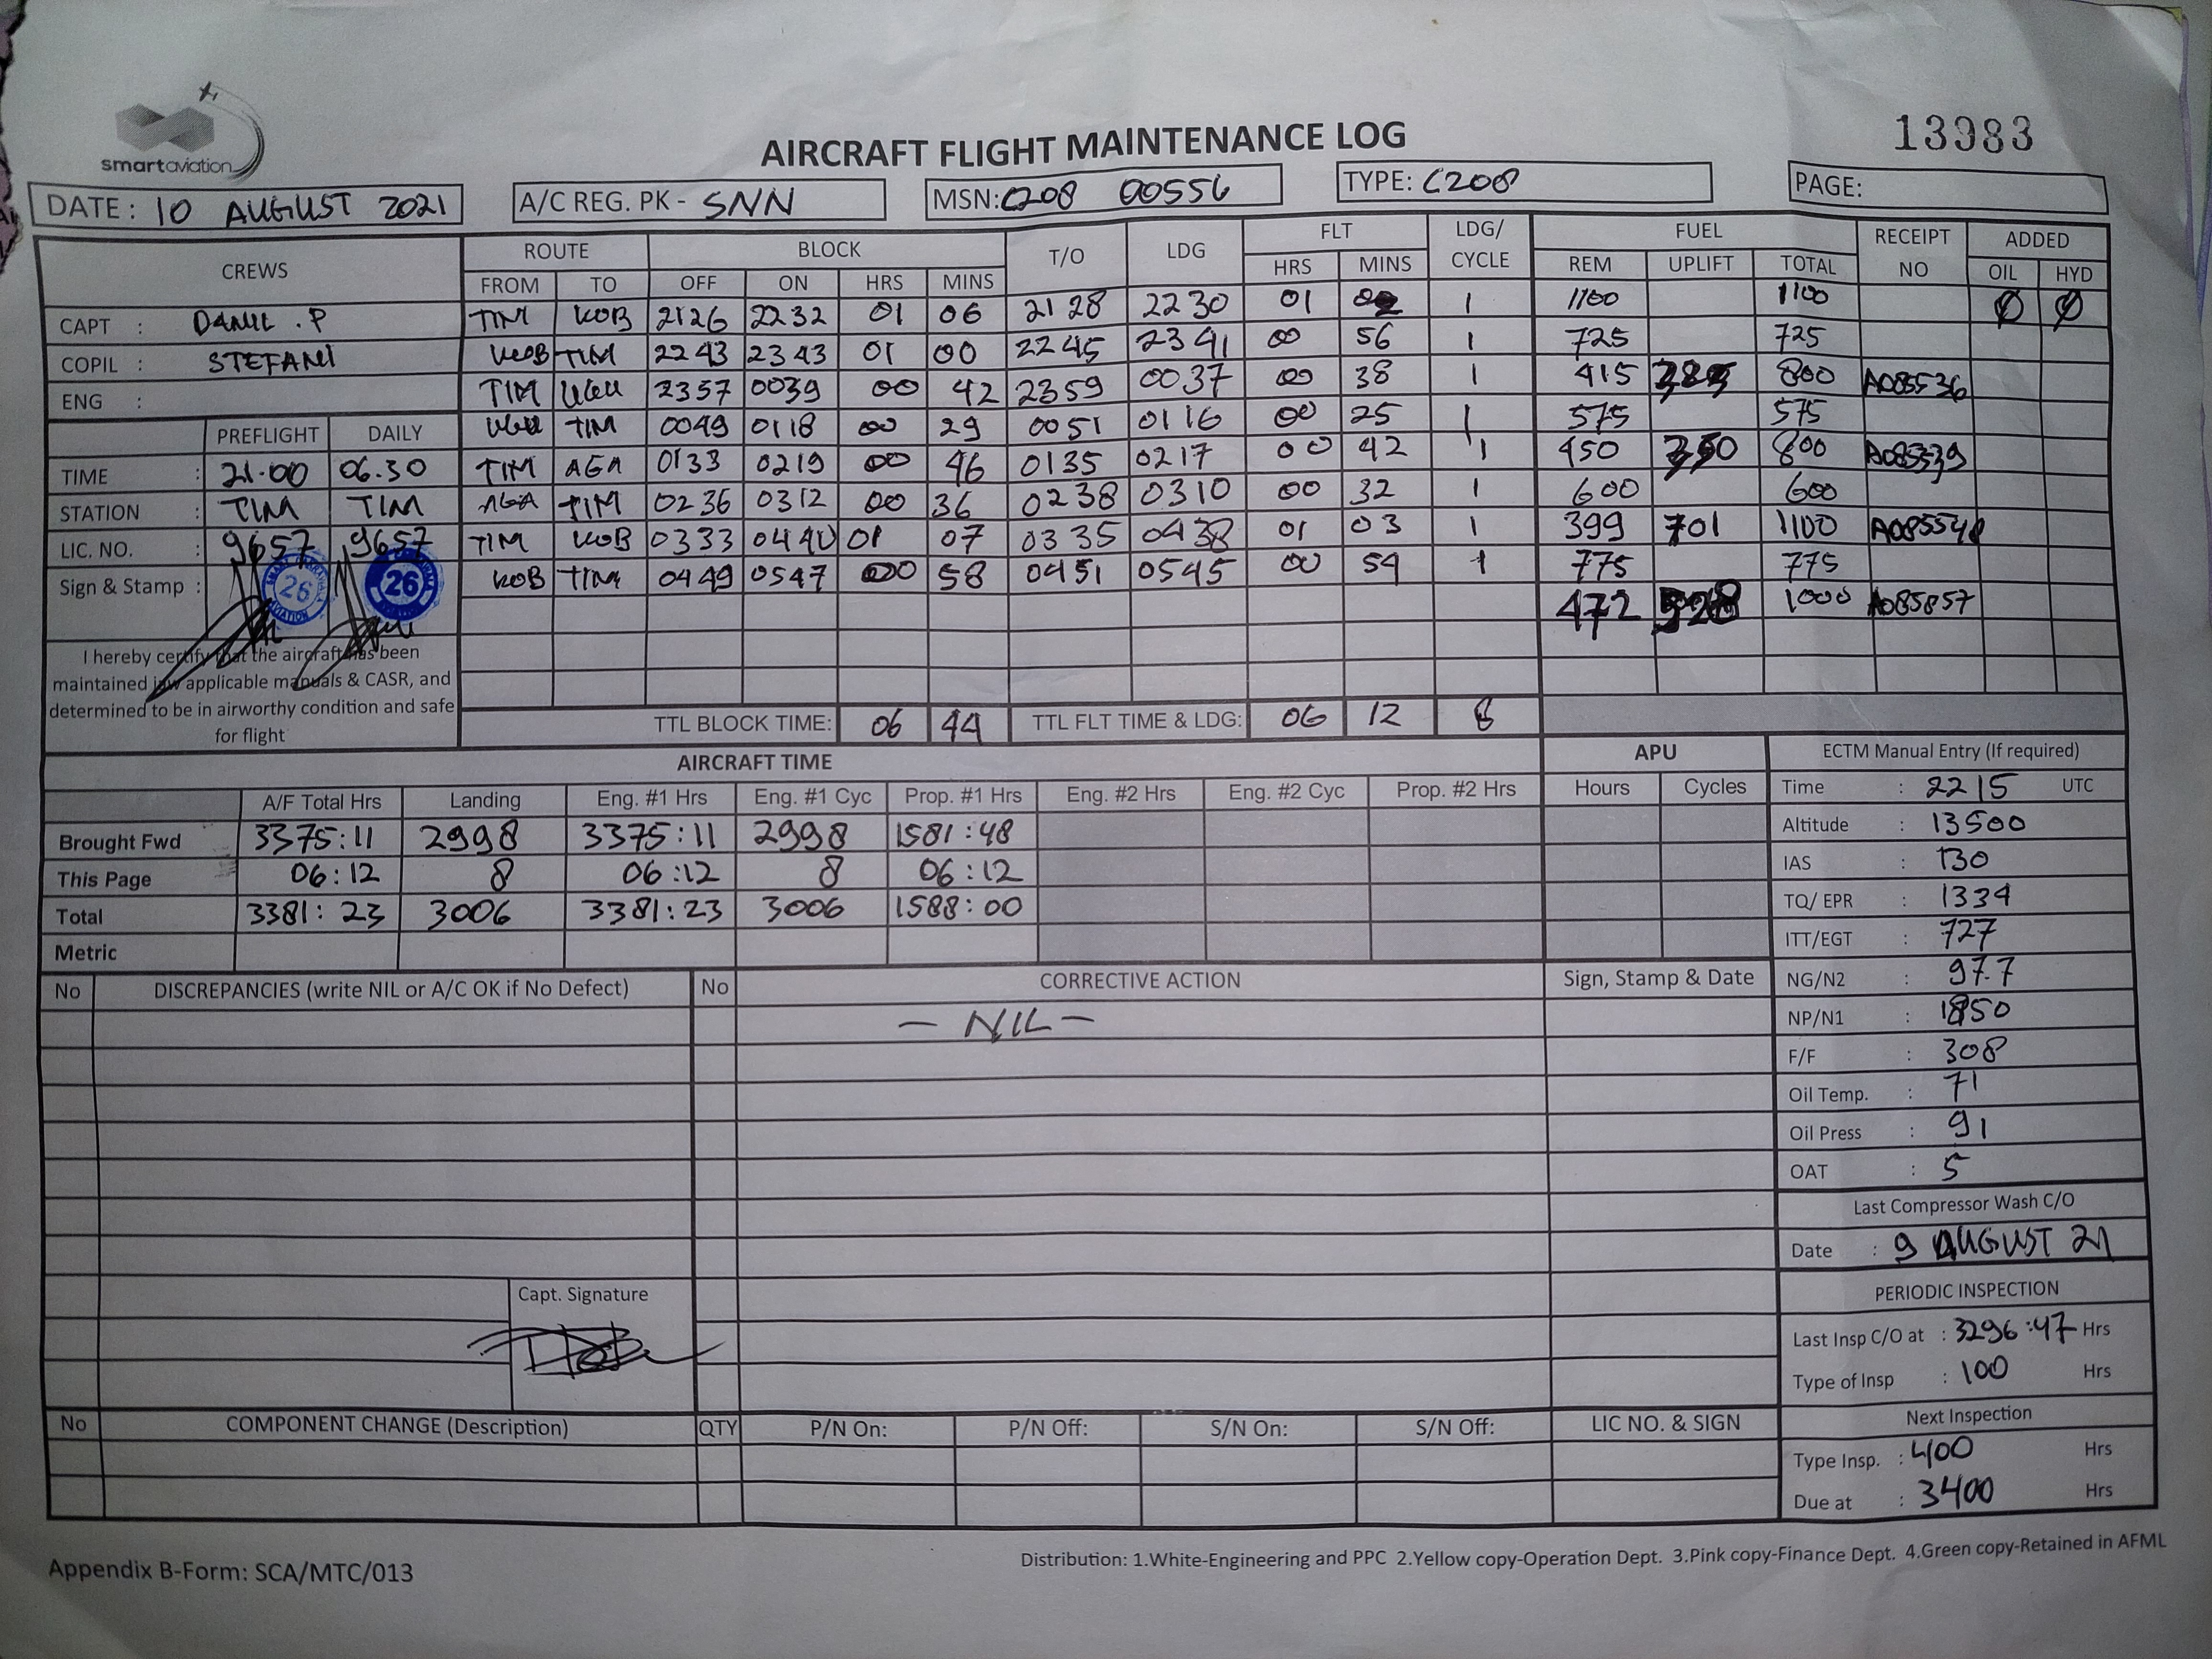 smartaviation
13983
AIRCRAFT FLIGHT MAINTENANCE LOG
DATE: 10 AUGUST 2021 A/C REG. PK - SNN MSN: C208 00556 TYPE: C208 PAGE:
CREWS ROUTE BLOCK T/O LDG FLT LDG/ CYCLE FUEL RECEIPT NO ADDED
FROM TO OFF ON HRS MINS HRS MINS REM UPLIFT TOTAL OIL HYD
CAPT : DANIL .P TIM KOB 2126 2232 01 06 2128 2230 01 02 1 1100 1100 Ø Ø
COPIL : STEFANI KOB TIM 2243 2343 01 00 2245 2341 00 56 1 725 725
ENG : TIM UGU 2357 0039 00 42 2359 0037 00 38 1 415 385 800 A085536
PREFLIGHT DAILY UGU TIM 0049 0118 00 29 0051 0116 00 25 1 575 575
TIME : 21.00 06.30 TIM AGA 0133 0219 00 46 0135 0217 00 42 1 450 350 800 A085539
STATION : TIM TIM AGA TIM 0236 0312 00 36 0238 0310 00 32 1 600 600
LIC. NO. : 9657 9657 TIM KOB 0333 0440 01 07 0335 0438 01 03 1 399 701 1100
Sign & Stamp : 26 26 KOB TIM 0449 0547 00 58 0451 0545 00 54 1 775 775
472 528 1000 A085857
I hereby certify that the aircraft has been
maintained iaw applicable manuals & CASR, and
determined to be in airworthy condition and safe
for flight
TTL BLOCK TIME: 06 44 TTL FLT TIME & LDG: 06 12 8
AIRCRAFT TIME APU ECTM Manual Entry (If required)
A/F Total Hrs Landing Eng. #1 Hrs Eng. #1 Cyc Prop. #1 Hrs Eng. #2 Hrs Eng. #2 Cyc Prop. #2 Hrs Hours Cycles Time : 2215 UTC
Brought Fwd 3375:11 2998 3375:11 2998 1581:48 Altitude : 13500
This Page 06:12 8 06:12 8 06:12 IAS : 130
Total 3381:23 3006 3381:23 3006 1588:00 TQ/ EPR : 1334
Metric ITT/EGT : 727
No DISCREPANCIES (write NIL or A/C OK if No Defect) No CORRECTIVE ACTION Sign, Stamp & Date NG/N2 : 97.7
- NIL - NP/N1 : 1850
F/F : 308
Oil Temp. : 71
Oil Press : 91
OAT : 5
Last Compressor Wash C/O
Date : 9 AUGUST 21
Capt. Signature PERIODIC INSPECTION
Last Insp C/O at : 3296:47 Hrs
Type of Insp : 100 Hrs
No COMPONENT CHANGE (Description) QTY P/N On: P/N Off: S/N On: S/N Off: LIC NO. & SIGN Next Inspection
Type Insp. : 400 Hrs
Due at : 3400 Hrs
Appendix B-Form: SCA/MTC/013
Distribution: 1.White-Engineering and PPC 2.Yellow copy-Operation Dept. 3.Pink copy-Finance Dept. 4.Green copy-Retained in AFML